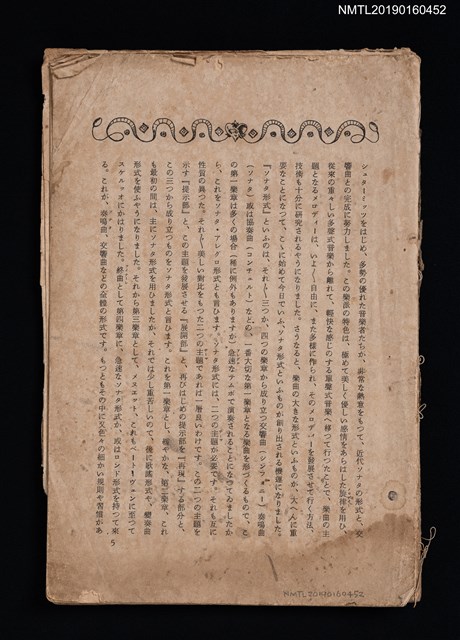 NMTL20190160452
シュターミッツをはじめ、多勢の優れた音樂者たちが、非常な熱意をもつて、近代ソナタの形式と、交
響曲との完成に努力しました。この樂派の特色は、極めて美しく優しい感情をあらはした旋律を用ひ、
從來の重々しい多聲式音樂から離れて、輕快な感じのする單聲式音樂へ移つて行つたことで、樂曲の主
題となるメロディーは、いよ〳〵自由に、また多樣に作られ、そのメロディーを發展させて行く方法、
技術も十分に研究されるやうになりました。さうなると、樂曲の大きな形式といふものが、大へんに重
要なことになつて、こゝに始めて今日でいふソナタ形式といふものが創り出される機運になりました。
『ソナタ形式』といふのは、それ〴〵三つか、四つの樂章から成り立つ交響曲（シンフォニー）奏鳴曲
（ソナタ）或は協奏曲（コンチェルト）などの、一番大切な第一樂章となる樂曲を形づくるもので、こ
の第一樂章は多くの場合（稀に例外もありますが）急速なテムポで演奏されることになつてゐましたか
ら、これをソナタ・アレグロ形式とも言ひます。ソナタ形式には、二つの主題が必要です。それも互に
性質の異つた。それ〴〵美しい對比をもつた二つの主題であれば一層良いわけです。この二つの主題を
示す『提示部』と、この主題を發展させる『展開部』と、再びはじめの提示部を『再現』する部分と、
この三つから成り立つものをソナタ形式と言ひます。これを第一樂章とし、緩やかな、第二樂章、これ
も最初の間は、主にソナタ形式を用ひましたが、それでは少し重苦しいので、後に歌謠形式や、變奏曲
形式を使ふやうになりました。それから第三樂章として、メヌエット、これもベートーヴェンに至つて
スケルツオにかはりました。終曲として第四樂章に、急速なソナタ形式か、或はロンド形式を持つて來
る。これが、奏鳴曲、交響曲などの全體の形式です。もつともその中に又色々の細かい規則や習慣があ
5
NMTL20190160452